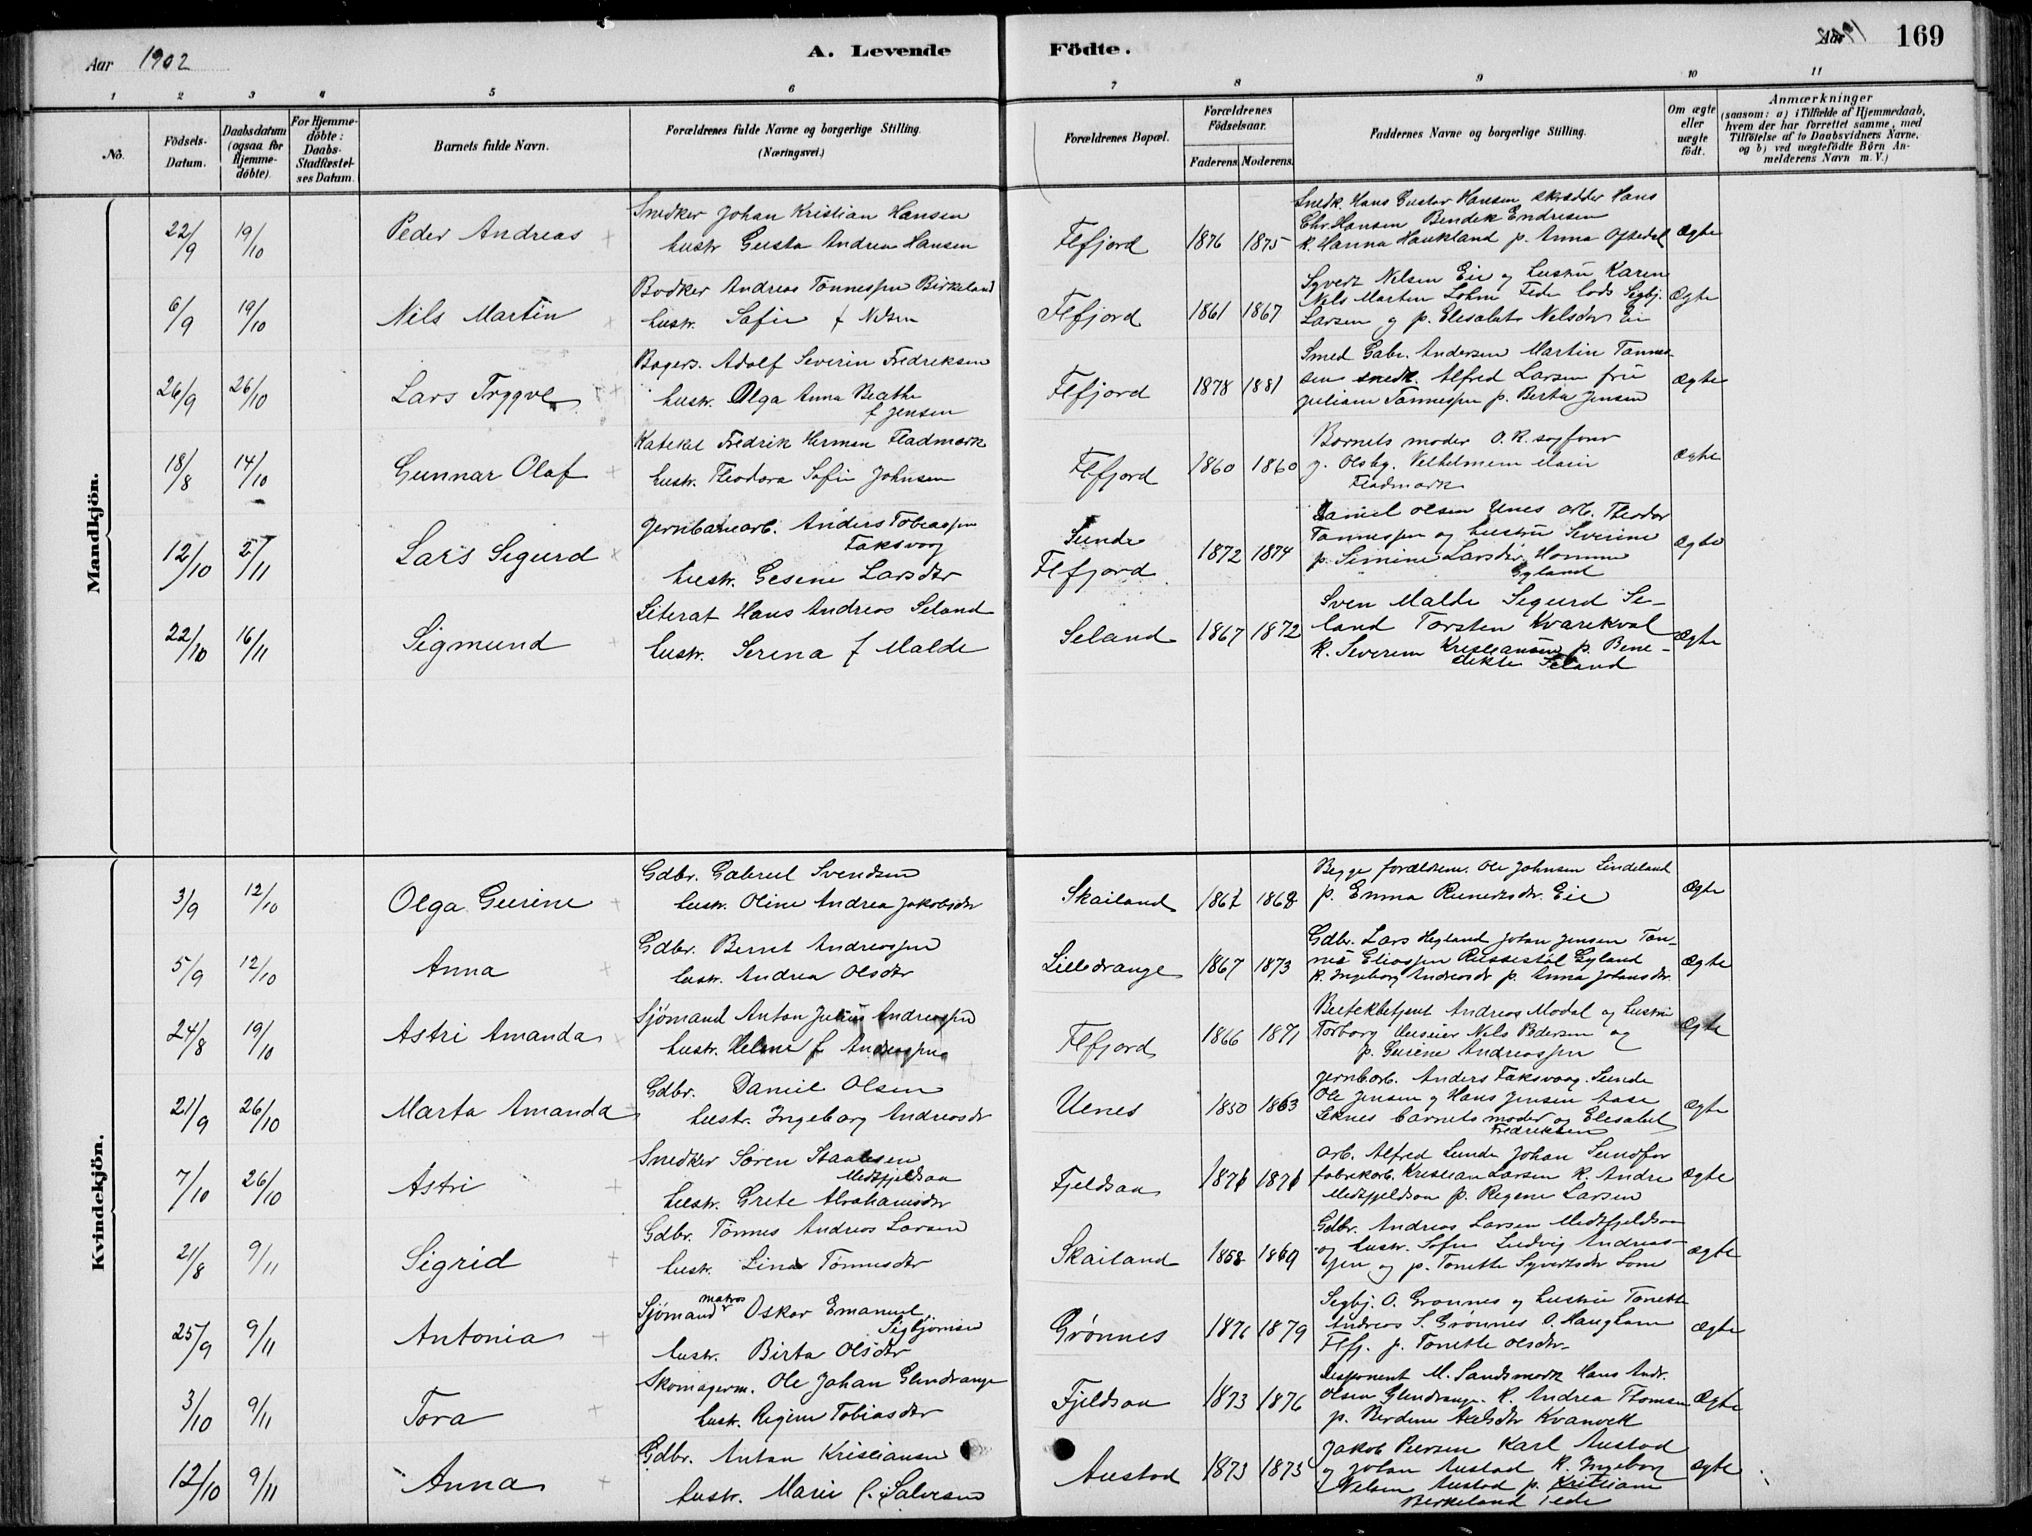 Aar 1902
A. Levende Födte.
Aar 1902
169
1 2 3 4 5 6 7 8 9 10 11
No.
Födsels-Datum.
Daabsdatum (ogsaa for Hjemme-döbte).
For Hjemme-döbte: Daabs-Stadfæstel-ses Datum.
Barnets fulde Navn.
Forældrenes fulde Navne og borgerlige Stilling.
(Næringsvei.)
Forældrenes Bopæl.
Forældrenes Födselsaar.
Faderens. Moderens.
Faddernes Navne og borgerlige Stilling.
Om ægte eller uægte födt.
Anmærkninger
(saasom: a) i Tilfælde af Hjemmedaab, hvem der har forrettet samme, med Tilföielse af to Daabsvidners Navne. og b) ved uægtefödte Börn An-melderens Navn m. V.)
Mandkjön.
22/9 19/10 Peder Andreas
Snedker Johan Kristian Hansen
hustr Gusta Andrea Hansen
Flfjord 1876 1875
Snedk. Hans Gustav Hansen skrædder Hans
Chr. Hansen Bendek Endresen
k. Hanna Haukland p. Anna Oftedal
Ægte
6/9 19/10 Nils Martin
Bødker Andreas Tønnessen Birkeland
hustr. Sofie f Nilsen
Flfjord 1861 1867
Syvert Nilsen Eie og hustru Karen
Nils Martin Lohne Fede lods Sigbj.
Larsen og p. Elisabet Nelsdtr Eie
Ægte
26/9 26/10 Lars Trygve
Bagers. Adolf Severin Fredriksen
hustr. Olga Anna Beathe
f Jensen
Flfjord 1878 1881
Smed Gabr. Andersen Martin Tønnes-
sen snedk. Alfred Larsen fru
Juliane Tønnessen p. Berta Jensen
Ægte
18/8 14/10 Gunnar Olaf
Kateket Fredrik Herman Fladmark
hustr. Theodora Sofie Johnsen
Flfjord 1860 1860
Barnets moder O.R. sagfører
g. Olsby. Vilhelmine Marie
Fladmark
Ægte
12/10 2/11 Lars Sigurd
Jernbanearb. Anders Tobiassen
Faksvaag
hustr. Gesine Larsdtr
Sunde
Flfjord 1872 1874
Daniel Olsen Uenes arb. Theodor
Tønnessen og hustru Severine
p. Simine Larsdtr Homme
Gyland
Ægte
22/10 16/11 Sigmund
Literat Hans Andreas Seland
hustr. Serina f Malde
Seland 1867 1872
Sven Malde Sigurd Se-
land Torsten Kvarekval
k. Severine Kristiansen p. Bene-
dikte Seland
Ægte
Kvindekjön.
3/9 12/10 Olga Geurine
Gdbr. Gabriel Svendsen
hustr. Oline Andrea Jakobsdtr
Skailand 1867 1868
Begge forældrene. Ole Johnsen Lindeland
p. Emma Reinertsdtr. Eie
Ægte
5/9 12/10 Anna
Gdbr. Bernt Andreassen
hustr. Andrea Olsdtr
Lilledrange 1867 1873
Gdbr. Lars Hegland Johan Jensen Tøn-
nes Eliassen Russestøl Gyland
k. Ingeborg Andreasdtr p. Anna Johansdtr.
Ægte
24/8 19/10 Astri Amanda
Sjømand Anton Julius Andreassen
hustr. Helene f Andreassen
Flfjord 1866 1871
Butikbetjent Andreas Modal og hustru
Torborg Nels Pedersen og
p. Geurine Andreassen
Ægte
21/9 26/10 Marta Amanda
Gdbr. Daniel Olsen
hustr. Ingeborg Andreasdtr
Uenes 1850 1863
Jernbarb. Anders Faksvaag Sunde
Ole Jensen og Hans Jensen Aase
barnets moder og Elisabet
Fredriksen
Ægte
7/10 26/10 Astri
Snedker Søren Staalesen
Midtfjeldsaa
hustr. Grete Abrahamsdtr
Fjeldsaa 1871 1871
Arb. Alfred Sunde Johan Sundfør
fabrikarb. Kristian Larsen k. Andre
Midtfjeldsaa p. Regine Larsen
Ægte
21/8 9/11 Sigrid
Gdbr. Tønnes Andreas Larsen
hustr. Lina Tønnesdtr
Skailand 1858 1869
Gdbr. Andreas Larsen Midtfjeldsaa
og hustr. Sofie Ludvig Andreas-
sen og p. Tonette Syvertsdtr Lone
Ægte
25/9 9/11 Antonia
Sjømand matros Oskar Emanuel
Sigbjørnsen
hustr. Birta Olsdtr
Grønnes 1876 1879
Sigbj. O. Grønnes og hustru Tonette
Andreas S. Grønnes O. Haugham
Flfj. p. Tonette Olsdtr.
Ægte
3/10 9/11 Tora
Skomagerm. Ole Johan Glendrange
hustr. Regine Tobiasdtr
Fjeldsaa 1873 1876
Disponent M. Sandsmark Hans Andr.
Olsen Glendrange. k. Andrea Thomsen
p. Berdine Axelsdtr Kvanvik
Ægte
12/10 9/11 Anna
Gdbr. Anton Kristiansen
hustr. Marie f. Salvesen
Austad 1873 1873
Jakob Peersen Karl Austad
og Johan Austad k. Ingeborg
Nelsen Austad p. Kristiane
Birkeland Fede
Ægte